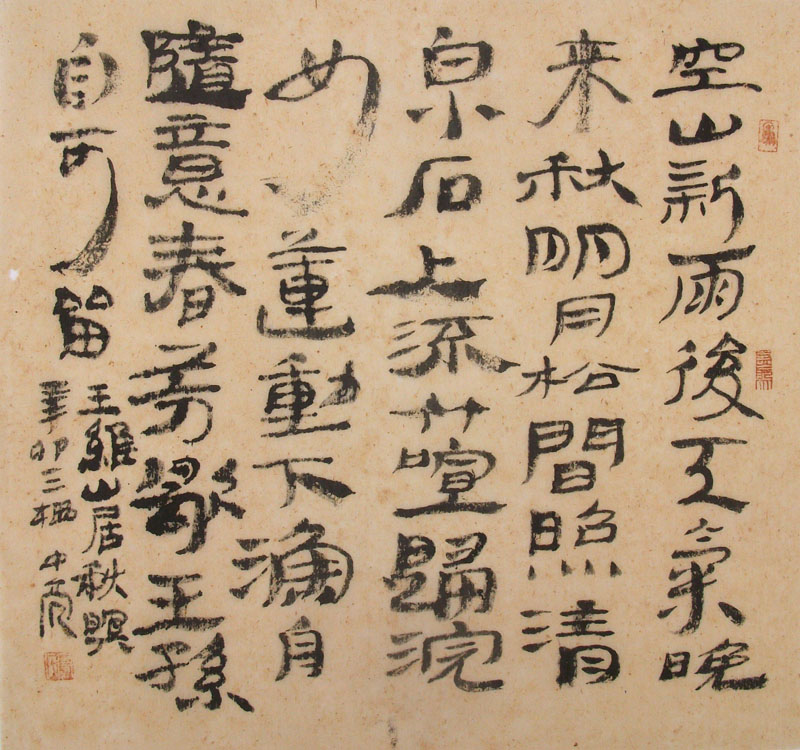 空山新雨後天氣晚
来秋明月松間照清
泉石上流竹喧歸浣
女蓮動下漁舟
隨意春芳歇王孫
自可留
王維山居秋暝
辛卯三栖中